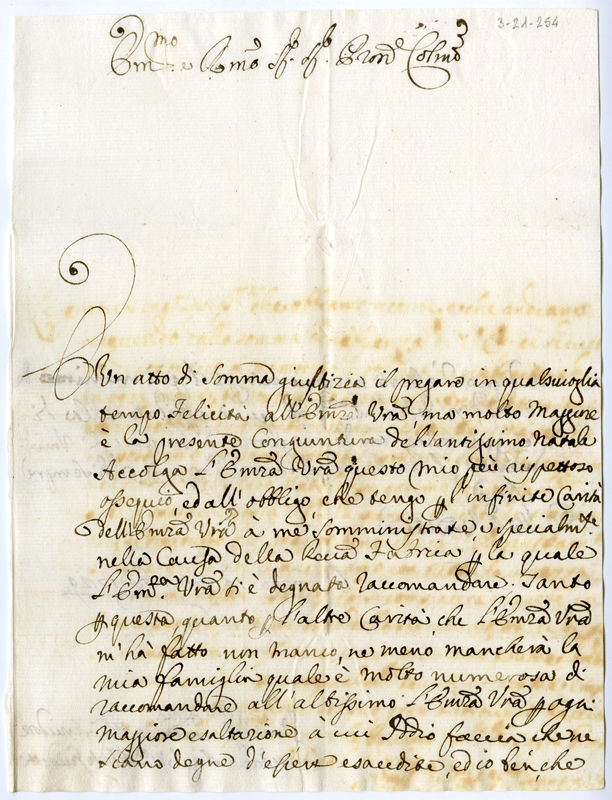 3-21-254
Em.mo e R.mo Sig. Sig. Pron Colmo
Un atto di somma giustizia il pregare in qualsivoglia
tempo Felicità all'Emza Vra, ma molto Maggiore
è la presente Congiuntura del Santissimo Natale
Accolga L'Emza Vra questo mio più rispettoso
ossequio, ed all'obbligo che tengo p l'infinite Carità
dell'Emza Vra à me somministrate, e specialmte
nella Causa della Fabrica p la quale
L'Emza Vra si è degnata raccomandare. Tanto
p questa, quanto p l'altre Carità che L'Emza Vra
m'hà fatto non manco, ne meno mancherà la
mia famiglia quale è molto numerosa di
raccomandare all'altissimo L'Emza Vra p ogni
maggiore esaltazione à cui Iddio faccia che ne
siano degne d'essere esaudite, ed io ben che